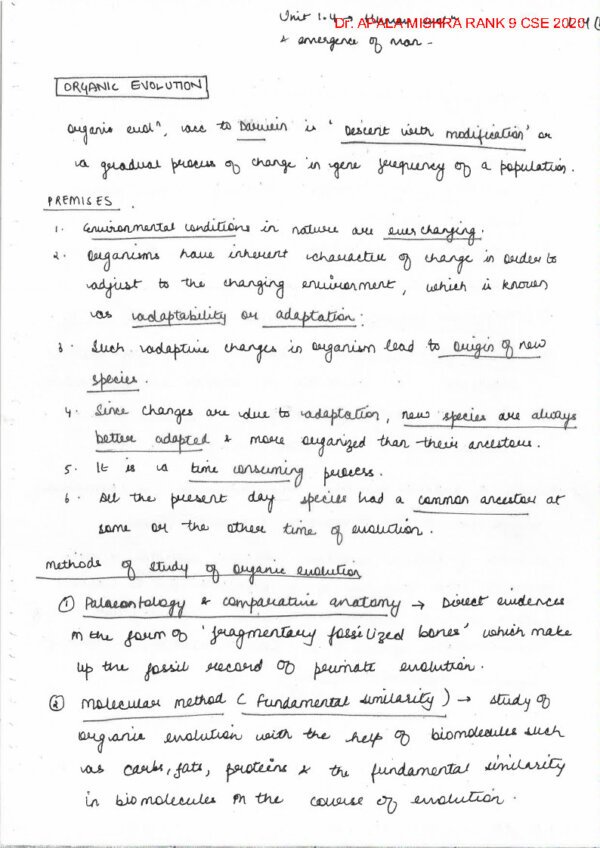 Unit 1.4 → Human evoln
Dr. APALA MISHRA RANK 9 CSE 2020
& emergence of man -
ORGANIC EVOLUTION
Organic evoln, acc to Darwin is 'Descent with modification' or
a gradual process of change in gene frequency of a population.
PREMISES
1. Environmental conditions in nature are ever changing.
2. Organisms have inherent character of change in order to
adjust to the changing environment, which is known
as adaptability or adaptation.
3. Such adaptive changes in organism lead to origin of new
species.
4. Since changes are due to adaptation, new species are always
better adapted & more organized than their ancestors.
5. It is a time consuming process.
6. All the present day species had a common ancestor at
some or the other time of evolution.
Methods of study of organic evolution
① Palaeontology & comparative anatomy → Direct evidences
in the form of 'fragmentary fossilized bones' which make
up the fossil record of primate evolution.
② Molecular method (Fundamental similarity) → study of
organic evolution with the help of biomolecules such
as carbs, fats, proteins & the fundamental similarity
in biomolecules in the course of evolution.